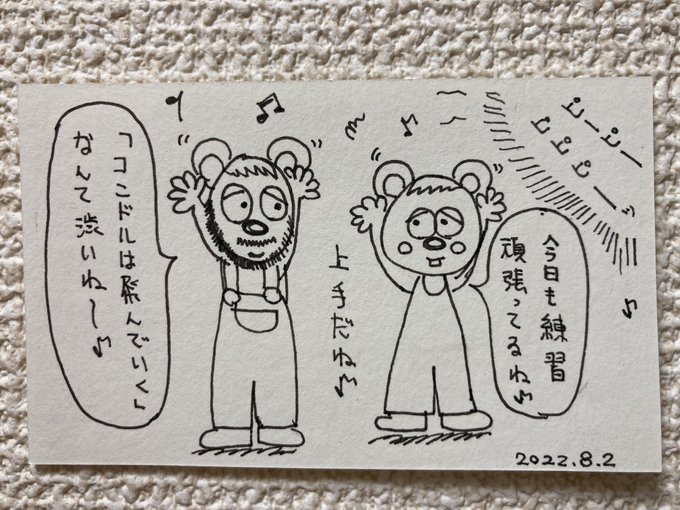 ピーピー
ピピピー
今日も練習
頑張ってるね
「コンドルは飛んでいく」
なんて渋いね〜♪
上手だね
2022.8.2